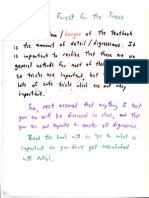 Forest for the Trees
danger of the textbook
is the amount of detail / digressions. It
is important to realize that there are no
general methods for most of
so tricks are important, but
lots of cute tricks which are not very
important.
So, rest assured that anything I test
you on will be discussed in class, and that
you are not expected to master all digressions.
Read the book with an eye to what is
important so you don't get overwhelmed
with detail.